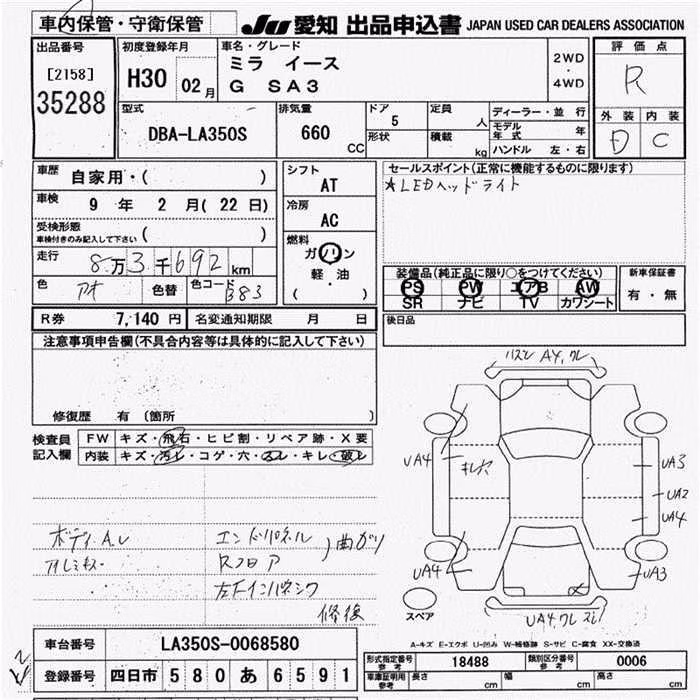 車内保管・守衛保管
JU 愛知 出品申込書 JAPAN USED CAR DEALERS ASSOCIATION
出品番号
[2158]
35288
初度登録年月
H30 02月
車名・グレード
ミラ イース
G SA3
2WD
・
4WD
評価点
R
外装 内装
D C
型式
DBA-LA350S
排気量
660 CC
ドア
5
形状
定員
人
積載
kg
ディーラー・並行
モデル年式 年
ハンドル 左・右
車歴 自家用・( )
車検 9年 2月(22日)
受検形態
車検付きのみ記入して下さい ( )
走行 8万3千692km
色 アオ 色替 色コード B83
シフト
AT
冷房
AC
燃料
ガソリン
軽・油
( )
セールスポイント(正常に機能するものに限ります)
★LEDヘッドライト
装備品(純正品に限り○をつけてください)
PS PW エアB AW
SR ナビ TV カワシート
新車保証書
有・無
R券 7,140円 名変通知期限 月 日
後日品
注意事項申告欄(不具合内容等は具体的に記入して下さい)
修復歴 有 〔箇所 〕
検査員記入欄
FW キズ・飛石・ヒビ割・リペア跡・X要
内装 キズ・汚レ・コゲ・穴・スレ・キレ・破レ
ボディA.U
アルミキズ
エンドパネル
Rフロア
曲がり
左R インパネシワ
修後
A4,ワレ
UA4
キレツ
UA3
UA2
UA4
UA4
UA3
UA4 ワレ スレ
スペア
A-キズ E-エクボ U-凹み W-補修跡 S-サビ C-腐食 XX-交換済
車台番号 LA350S-0068580
登録番号 四日市 580 あ 6591
型式指定番号 参考 18488
類別区分番号 参考 0006
車庫証明用 参考 長さ cm 幅 cm 高さ cm